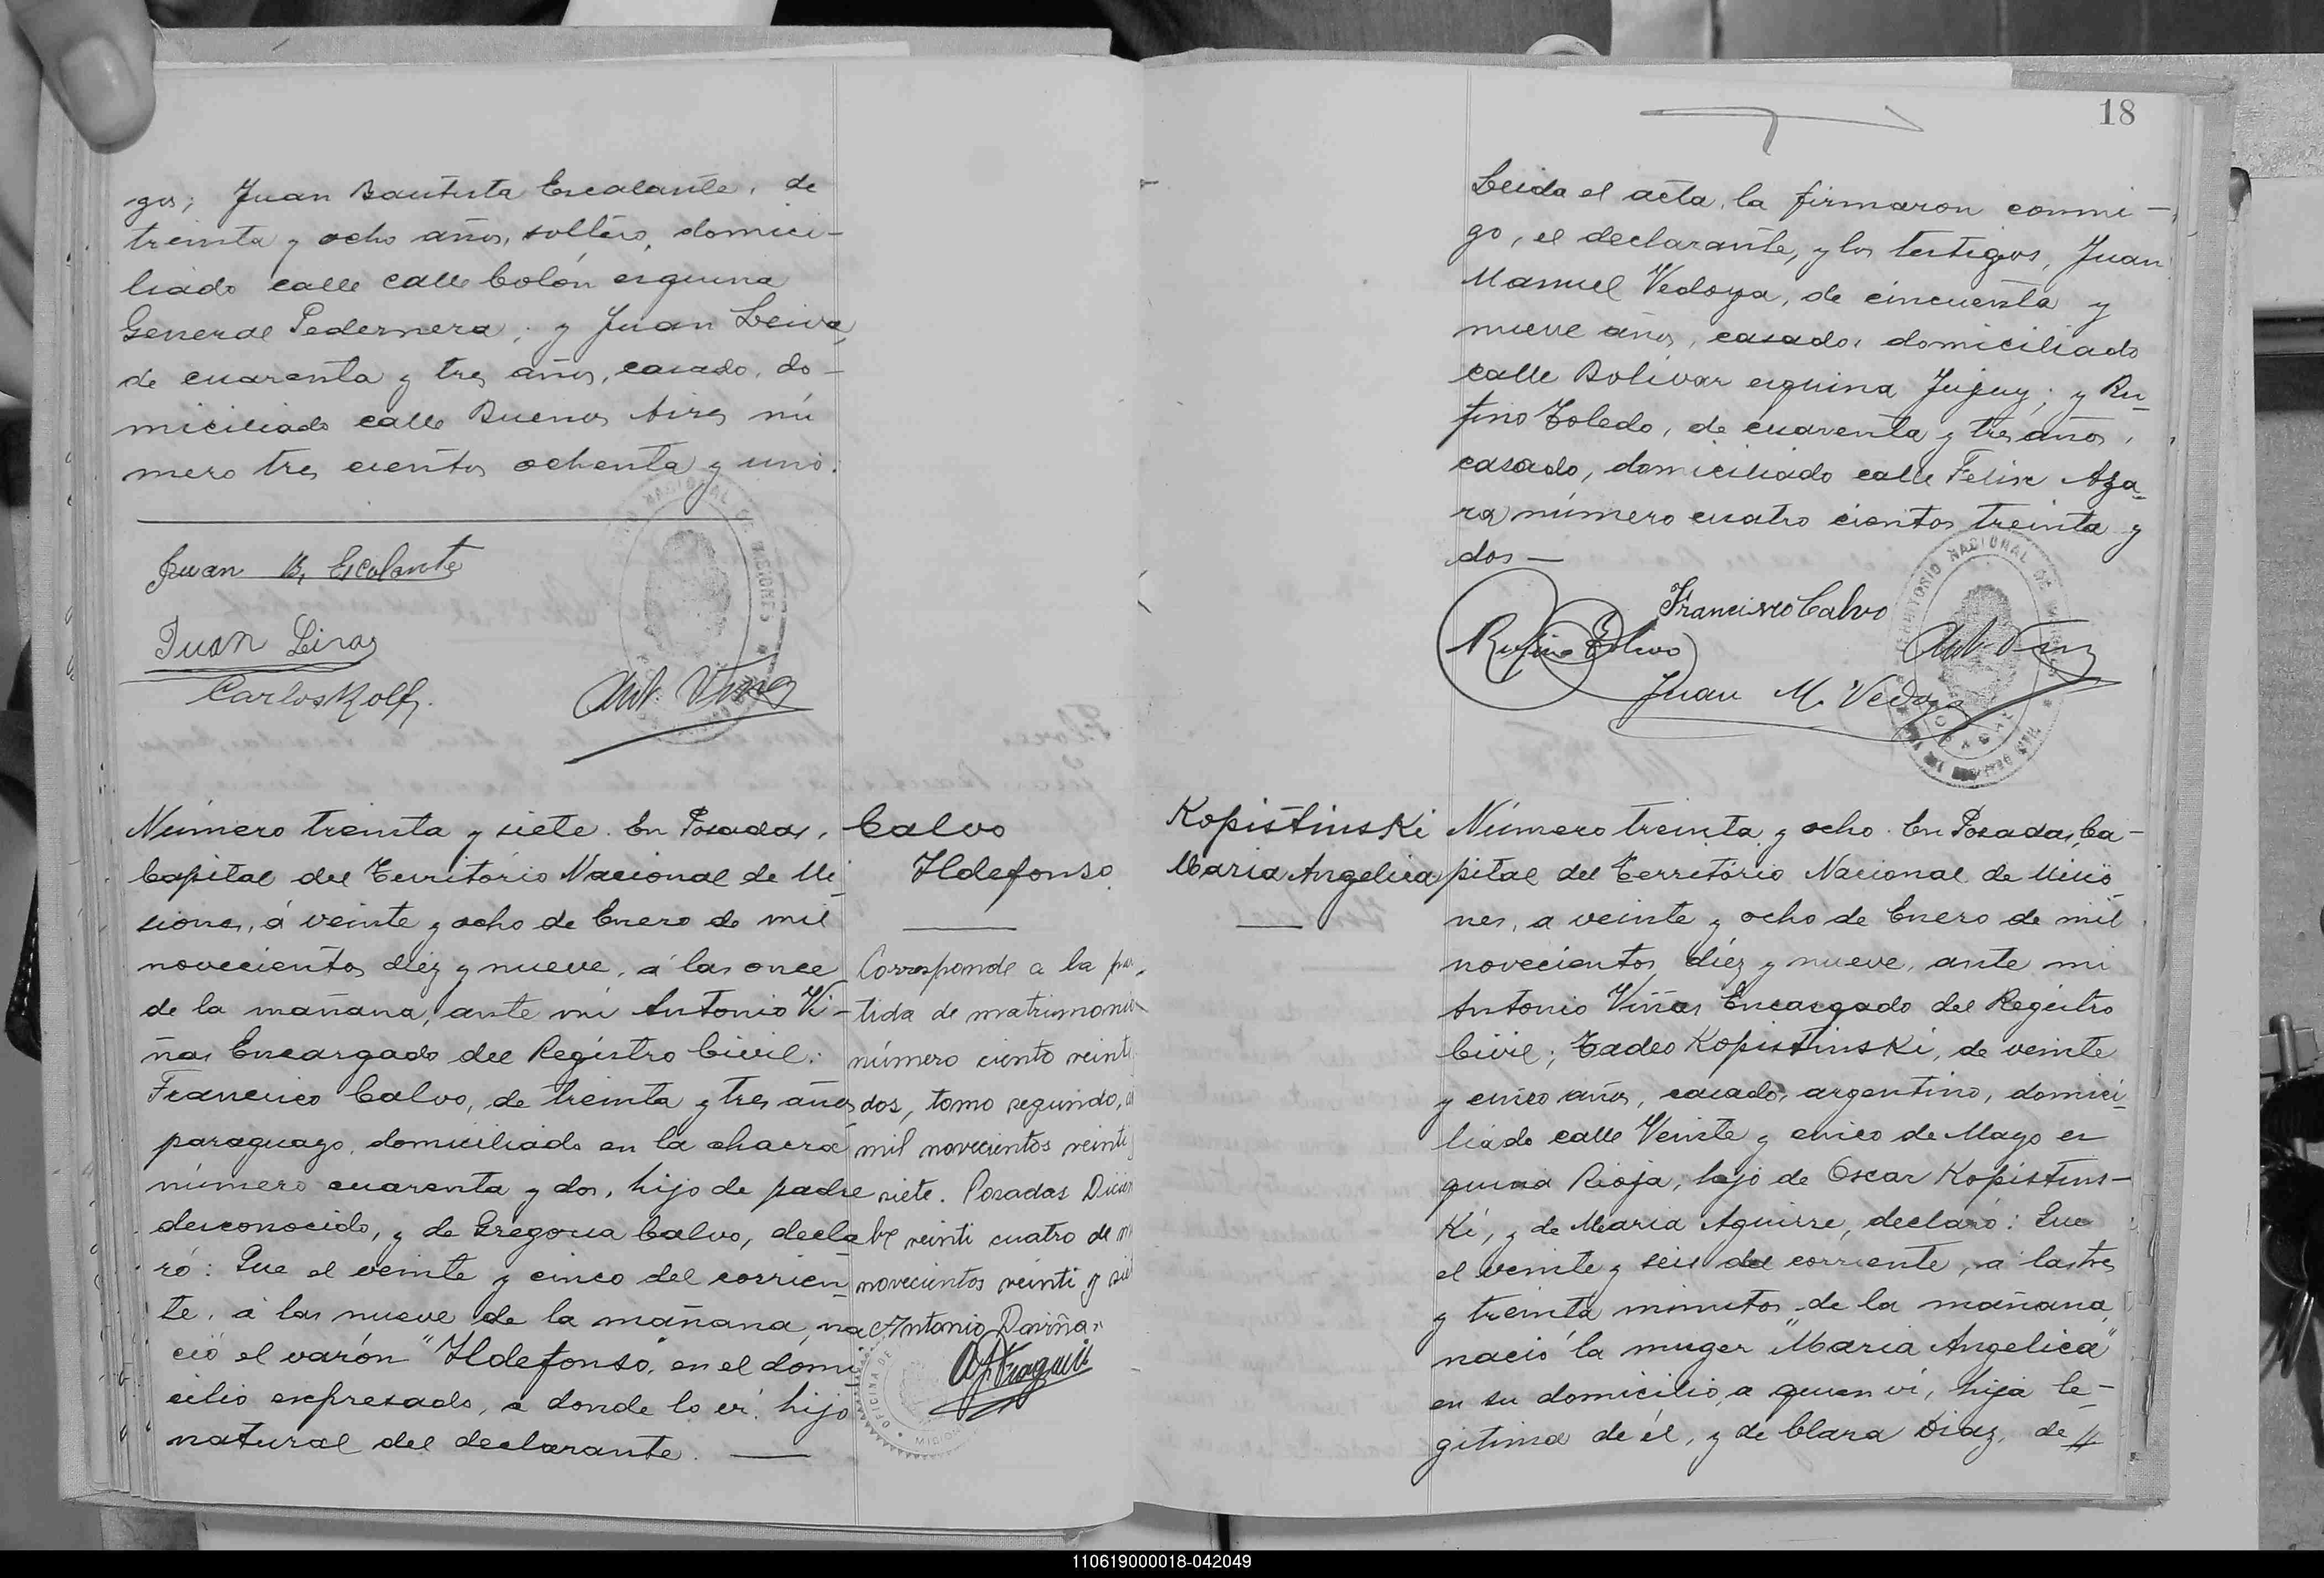 gos; Juan Bautista Escalante, de
treinta y ocho años, soltero, domici-
liado calle calle Colón esquina
General Pedernera; y Juan Leiva,
de cuarenta y tres años, casado, do-
miciliado calle Buenos Aires nú
mero tres cientos ochenta y uno.
Juan B. Escalante
Juan Leiva
Carlos Rolf
Ant. Viñas
Número treinta y siete. En Posadas,
Capital del Territorio Nacional de Mi-
siones, á veinte y ocho de Enero de mil
novecientos diez y nueve, á las once
de la mañana, ante mi Antonio Vi-
ñas Encargado del Registro Civil:
Francisco Calvo, de treinta y tres años
paraguayo, domiciliado en la chacra
número cuarenta y dos, hijo de padre
desconocido, y de Gregoria Calvo, decla
ró: Que el veinte y cinco del corrien-
te, á las nueve de la mañana, na
ció el varón "Ildefonso", en el domi-
cilio expresado, a donde lo ví, hijo
natural del declarante.
Calvo
Ildefonso
Corresponde a la par
tida de matrimonio
número ciento veinti
dos, tomo segundo,
mil novecientos veinti
siete. Posadas Diciem
bre veinti cuatro de
novecientos veinti y
Antonio
OFICINA DE
18
Leida el acta, la firmaron conmi-
go, el declarante, y los testigos, Juan
Manuel Vedoya, de cincuenta y
nueve años, casado, domiciliado
calle Bolivar esquina Jujuy; y Ru-
fino Toledo, de cuarenta y tres años,
casado, domiciliado calle Felix Aza-
ra número cuatro cientos treinta y
dos —
Francisco Calvo
Rufino Toledo
Ant. Viñas
Juan M. Vedoya
Kopistinski
Maria Angelica
Número treinta y ocho. En Posadas, Ca-
pital del Territorio Nacional de Misio
nes, a veinte y ocho de Enero de mil
novecientos diez y nueve, ante mi
Antonio Viñas Encargado del Registro
Civil; Tadeo Kopistinski, de veinte
y cinco años, casado, argentino, domici-
liado calle Veinte y cinco de Mayo es
quina Rioja, hijo de Oscar Kopistins-
ki, y de Maria Aguirre, declaró: Que
el veinte y seis del corriente, a las tres
y treinta minutos de la mañana,
nació la muger "Maria Angelica"
en su domicilio, a quien ví, hija le-
gitima de él, y de Clara Diaz, de
110619000018-042049